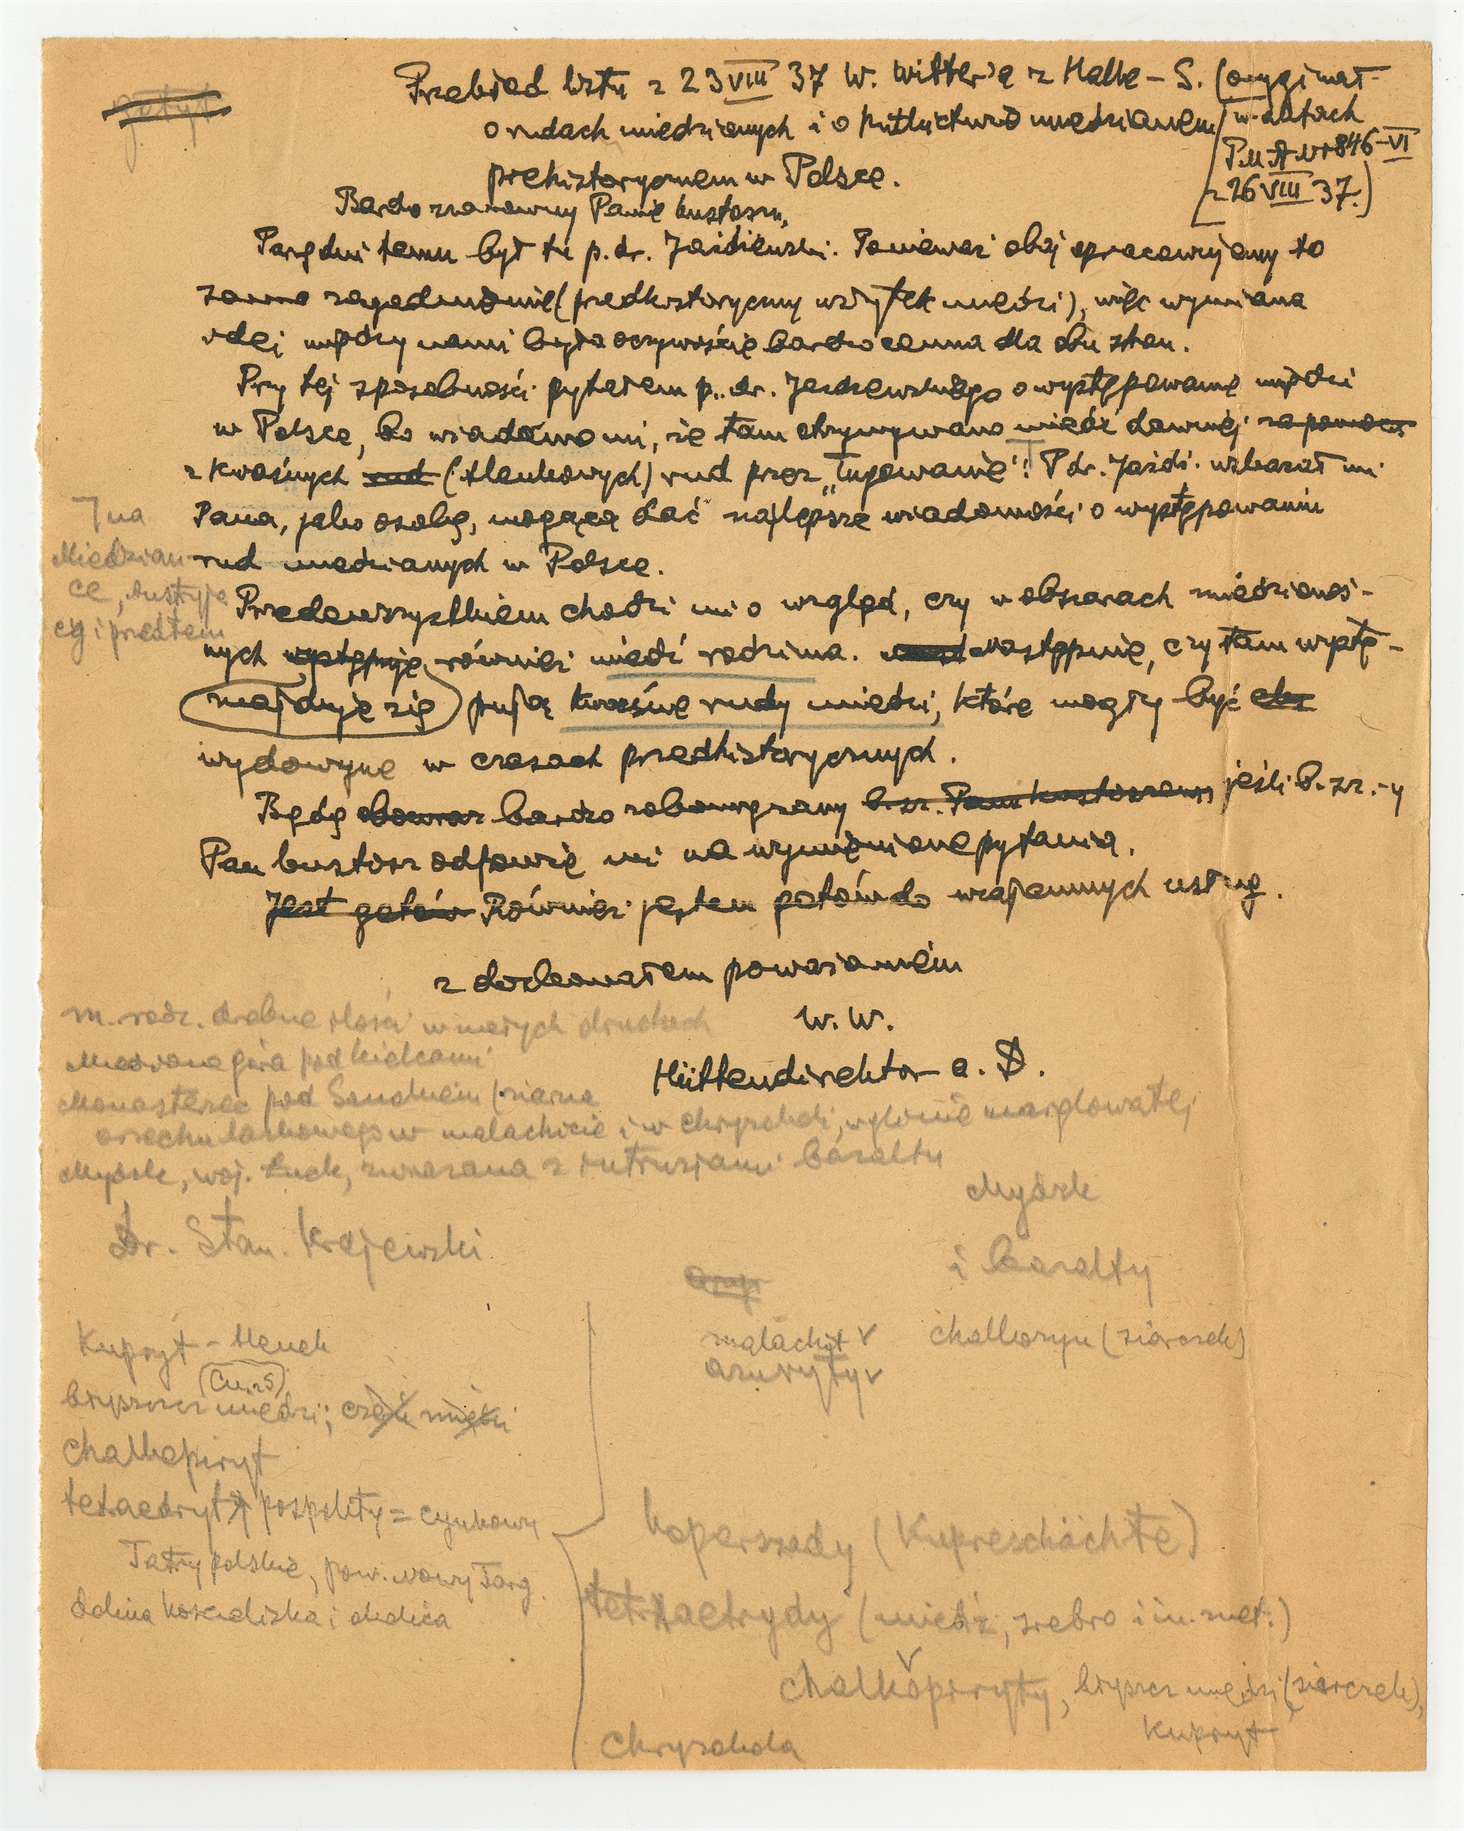 Przekład listu z 23 VIII 37 W. Witter'a z Halle – S. (oryginał
o rudach miedzianych i o hutnictwie miedzianem w aktach
P.M.A. Nr 846–VI
prehistorycznem w Polsce.
z 26 VIII 37.)
Bardzo szanowny Panie kustoszu,
Parę dni temu był tu p. dr. Jażdżewski. Ponieważ obaj opracowujemy to
samo zagadnienie (przedhistoryczny użytek miedzi), więc wymiana
idei między nami była oczywiście bardzo cenna dla obu stron.
Przy tej sposobności pytałem p. dr. Jażdżewskiego o występowanie miedzi
w Polsce, bo wiadomo mi, że tam otrzymywano miedź dawniej za pomocą
z kwaśnych rud (tlenkowych) rud przez „ługowanie"! P. dr. Jażdż. wskazał mi
Pana, jako osobę, mogącą dać najlepsze wiadomości o występowaniu
rud miedzianych w Polsce.
7 na
Miedzian
ce, Austryja
cy i przedtem
Przedewszystkiem chodzi mi o wzgląd, czy w obszarach miedzionoś-
nych występuje również miedź rodzima. Następnie, czy tam wystę-
znajduje się pują kwaśne rudy miedzi, które mogły być
wydobyte w czasach przedhistorycznych.
Będę bardzo zobowiązany b. sz. Panu kustoszowi jeśli b. sz.-y
Pan kustosz odpowie mi na wymienione pytania.
Jest gotów Również jestem gotów do wzajemnych usług.
z doskonałem poważaniem
W. W.
Hüttendirektor a. D.
m. rodz. drobne ilości w małych druzach
Miedziana góra pod Kielcami
Monasterzec pod Sanokiem (ziarna
orzecha laskowego w malachicie i w chryzokoli, w glinie marglowatej
Mydzk, woj. Łuck, związana z intruzjami bazaltu
Mydzk
Dr. Stan. Krajewski
i bazalty
Kupryt – tlenek
malachit v
chalkozyn (siarczek)
azuryty v
(Cu₂S)
błyszcz miedzi; część miedzi
chalkopiryt
tetraedryt pospolity = cynkowy
Tatry polskie, pow. Nowy Targ.
Dolina Kościeliska i okolica
koperszady (Kupreschächte)
tetraetrydy (miedź, srebro i in. met.)
chalkopiryty, błyszcz miedzi (siarczek),
kupryt
Chryzokola